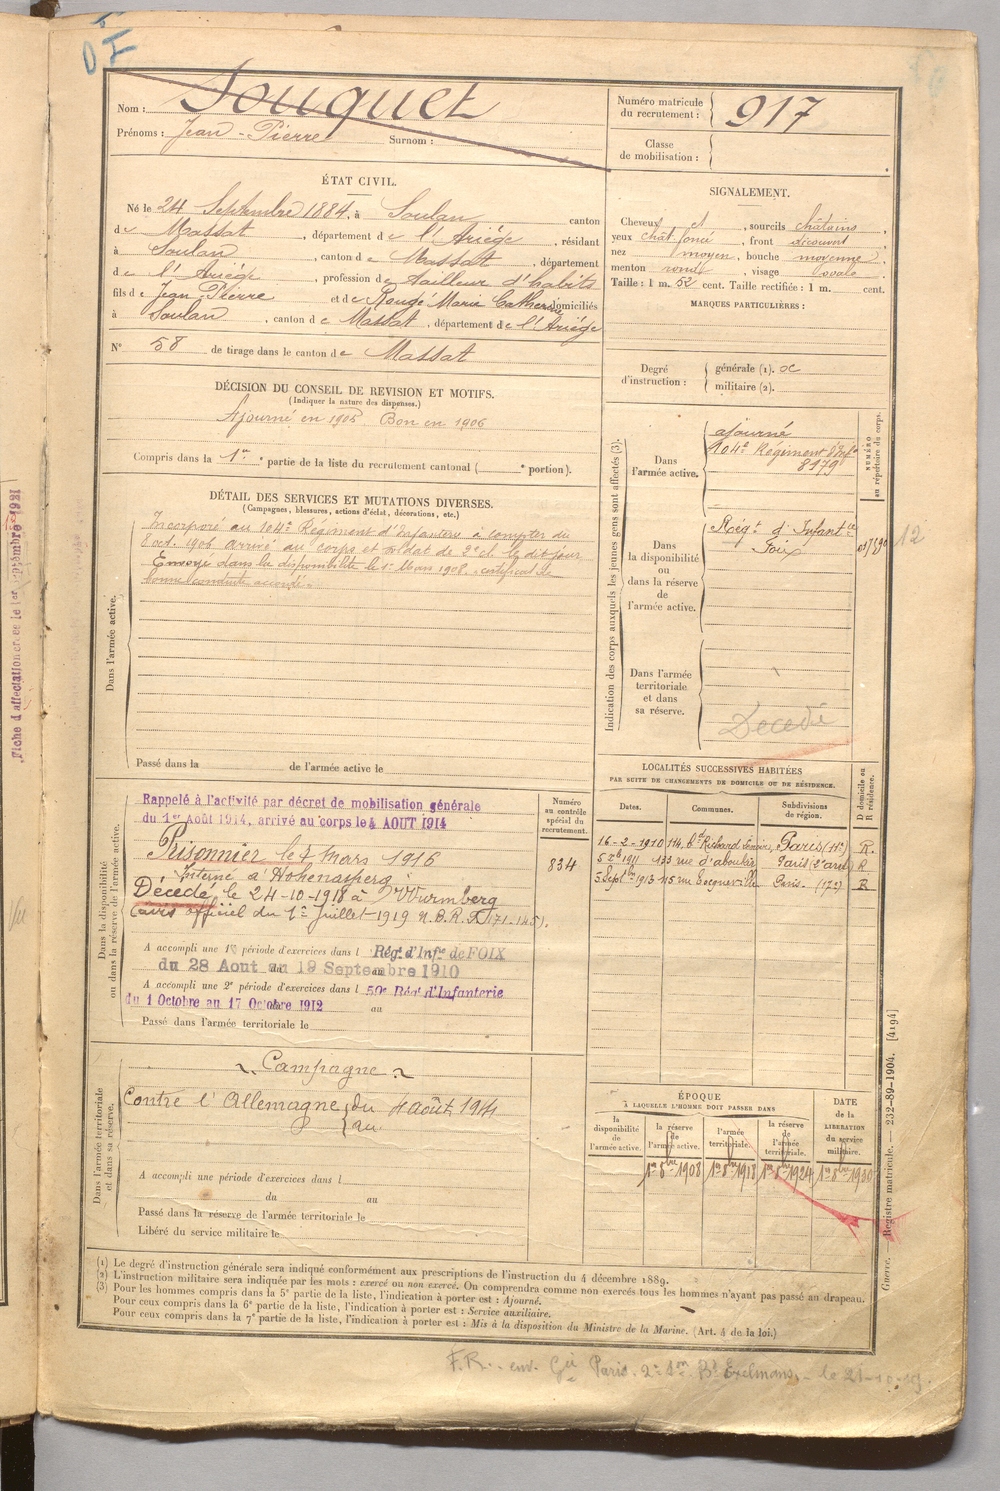 DI
Nom : Souquet
Prénoms : Jean-Pierre Surnom :
Numéro matricule du recrutement : 917
Classe de mobilisation :
ÉTAT CIVIL.
Né le 24 Septembre 1884, à Soulan canton
de Massat, département de l'Ariége, résidant
à Soulan, canton de Massat, département
de l'Ariége, profession de tailleur d'habits
fils de Jean Pierre et de Rougé Marie Catherine domiciliés
à Soulan, canton de Massat, département de l'Ariége
N° 58 de tirage dans le canton de Massat
SIGNALEMENT.
Cheveux et, sourcils châtains,
yeux chât. foncé, front découvert,
nez moyen, bouche moyenne,
menton rond, visage ovale
Taille : 1 m. 52 cent. Taille rectifiée : 1 m. cent.
MARQUES PARTICULIÈRES :
DÉCISION DU CONSEIL DE REVISION ET MOTIFS.
(Indiquer la nature des dispenses.)
Ajourné en 1905 Bon en 1906
Compris dans la 1re partie de la liste du recrutement cantonal ( e portion).
Degré d'instruction : générale (1).
militaire (2).
DÉTAIL DES SERVICES ET MUTATIONS DIVERSES.
(Campagnes, blessures, actions d'éclat, décorations, etc.)
Dans l'armée active.
Incorporé au 104e Régiment d'Infanterie à compter du
8 oct. 1906 arrivé au corps et soldat de 2e cl. le dit jour
Envoyé dans la disponibilité le 1er Mars 1908. certificat de
bonne conduite accordé.
Passé dans la de l'armée active le
Indication des corps auxquels les jeunes gens sont affectés (3).
NUMÉRO au répertoire du corps.
Dans l'armée active.
ajourné
104e Régiment d'Infie
8179
Dans la disponibilité ou dans la réserve de l'armée active.
Régt d'Infantie
Foix
12
Dans l'armée territoriale et dans sa réserve.
Décédé
Dans la disponibilité ou dans la réserve de l'armée active.
Numéro au contrôle spécial du recrutement.
834
Rappelé à l'activité par décret de mobilisation générale
du 1er Août 1914, arrivé au corps le 4 AOUT 1914
Prisonnier le 7 mars 1916
Interné à Hohenasperg
Décédé le 24-10-1918 à Wurmberg
(avis officiel du 1er Juillet 1919 N.B.R.F. 171-145).
A accompli une 1e période d'exercices dans l Régt d'Infie de FOIX
du 28 Aout au 19 Septembre 1910
A accompli une 2e période d'exercices dans l 50e Régt d'Infanterie
du 1 Octobre au 17 Octobre 1912 au
Passé dans l'armée territoriale le
LOCALITÉS SUCCESSIVES HABITÉES
PAR SUITE DE CHANGEMENTS DE DOMICILE OU DE RÉSIDENCE.
D domicile ou R résidence.
Dates. Communes. Subdivisions de région.
16-2-1910 114, Bd Richard Lenoir, Paris (11e) R.
5 Xb 1911 133 rue d'aboukir Paris (2e arrt) R
5 Septbre 1913 115 rue Tocqueville Paris (17e) R
Dans l'armée territoriale et dans sa réserve.
Campagne
Contre l'Allemagne du 4 août 1914
au
A accompli une période d'exercices dans l
du au
Passé dans la réserve de l'armée territoriale le
Libéré du service militaire le
ÉPOQUE
À LAQUELLE L'HOMME DOIT PASSER DANS
DATE de la LIBÉRATION du service militaire.
la disponibilité de l'armée active.
la réserve de l'armée active.
l'armée territoriale.
la réserve de l'armée territoriale.
1er 8bre 1908 1er 8bre 1918 1er 8bre 1924 1er 8bre 1930
(1) Le degré d'instruction générale sera indiqué conformément aux prescriptions de l'instruction du 4 décembre 1889.
(2) L'instruction militaire sera indiquée par les mots : exercé ou non exercé. On comprendra comme non exercés tous les hommes n'ayant pas passé au drapeau.
(3) Pour les hommes compris dans la 5e partie de la liste, l'indication à porter est : Ajourné.
Pour ceux compris dans la 6e partie de la liste, l'indication à porter est : Service auxiliaire.
Pour ceux compris dans la 7e partie de la liste, l'indication à porter est : Mis à la disposition du Ministre de la Marine. (Art. 4 de la loi.)
Guerre. — Registre matricule. — 232-89-1904. [4194]
F.R. env. Paris. Bd Exelmans, le 21-10-